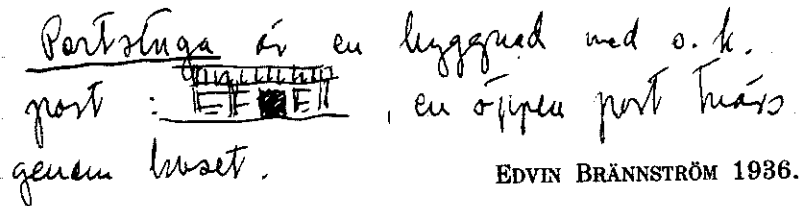 Portstuga är en byggnad med s. k.
port : , en öppen port tvärs
genom huset.
EDVIN BRÄNNSTRÖM 1936.